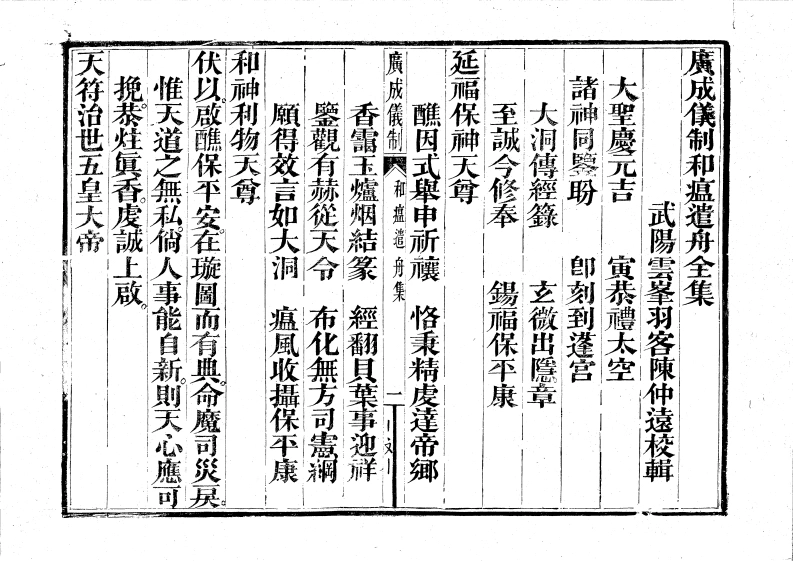 廣成儀制和瘟遣舟全集
武陽雲峯羽客陳仲遠校輯
大聖慶元吉　寅恭禮太空
諸神同鑒盼　卽刻到蓬宮
大洞傳經籙　玄微出隱章
至誠今修奉　錫福保平康
延福保神天尊
醮因式舉申祈禳　恪秉精虔達帝鄉
廣成儀制　和瘟遣舟集　二
香靄玉爐烟結篆　經翻貝葉事迎祥
鑒觀有赫從天令　布化無方司憲綱
願得效言如大洞　瘟風收攝保平康
和神利物天尊
伏以。啟醮保平安。在璇圖而有典。命魔司災戾。
惟天道之無私。倘人事能自新。則天心應可
挽。恭炷眞香。虔誠上啟。
天符治世五皇大帝